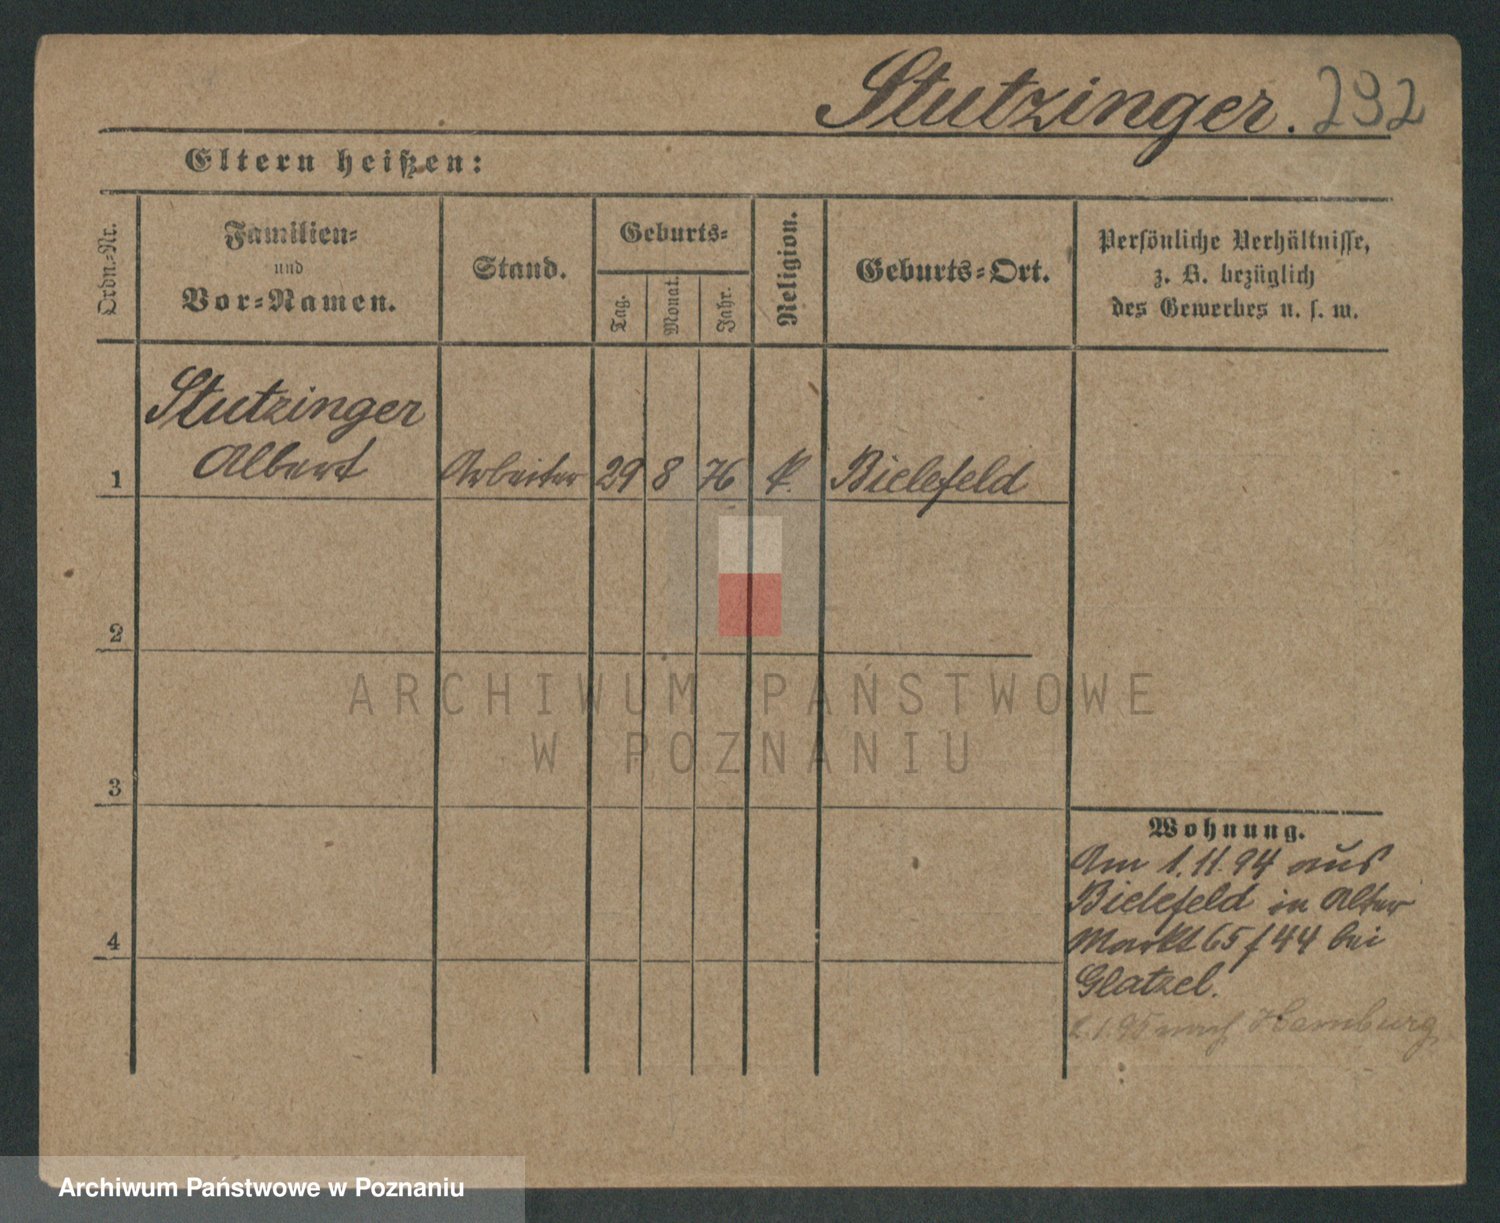 Stutzinger. 292
Eltern heißen:
Ordn.-Nr.
Familien-
und
Vor-Namen.
Stand.
Geburts-
Tag.
Monat.
Jahr.
Religion.
Geburts-Ort.
Persönliche Verhältnisse,
z. B. bezüglich
des Gewerbes u. s. w.
Stutzinger
1 Albert Arbeiter 29 8 76 k. Bielefeld
2
3
4
Wohnung.
Am 1.11.94 aus
Bielefeld in Alter
Markt 65/44 bei
Glatzel.
1.95 nach Hamburg
ARCHIWUM PAŃSTWOWE
W POZNANIU
Archiwum Państwowe w Poznaniu